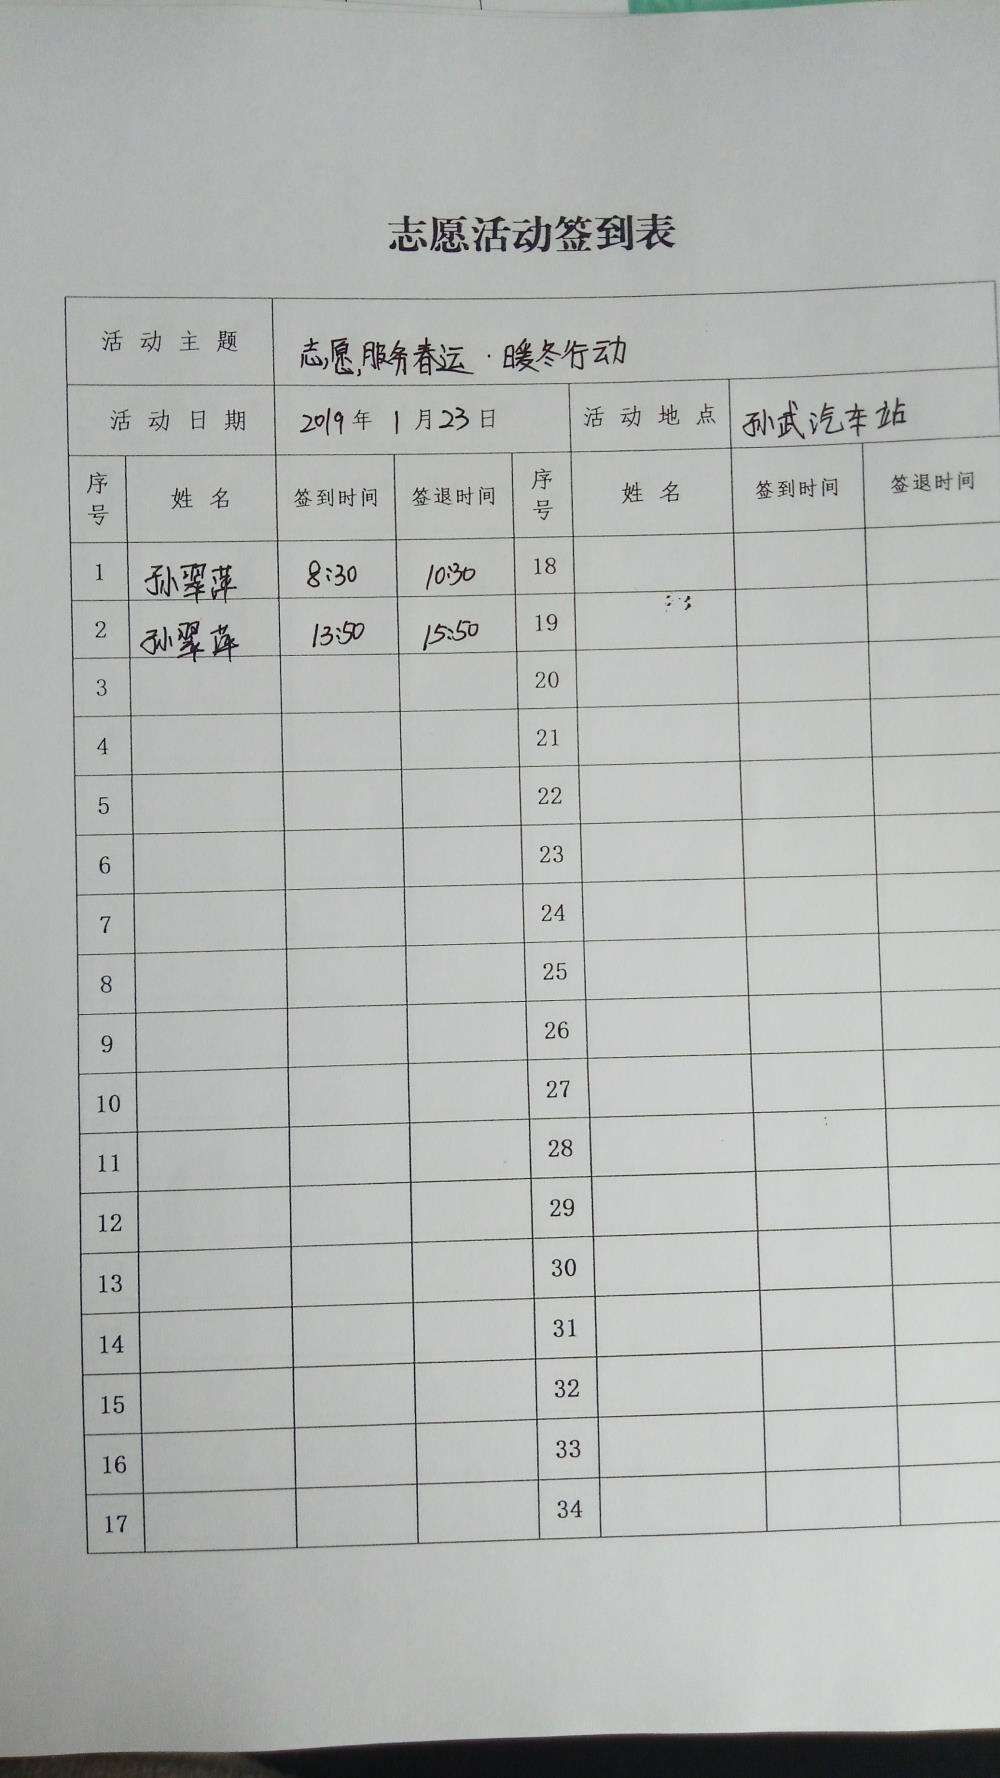 志愿活动签到表
活动主题 志愿服务春运·暖冬行动
活动日期 2019年1月23日 活动地点 孙武汽车站
序号 姓名 签到时间 签退时间 序号 姓名 签到时间 签退时间
1 孙翠萍 8:30 10:30 18
2 孙翠萍 13:50 15:50 19
3 20
4 21
5 22
6 23
7 24
8 25
9 26
10 27
11 28
12 29
13 30
14 31
15 32
16 33
17 34